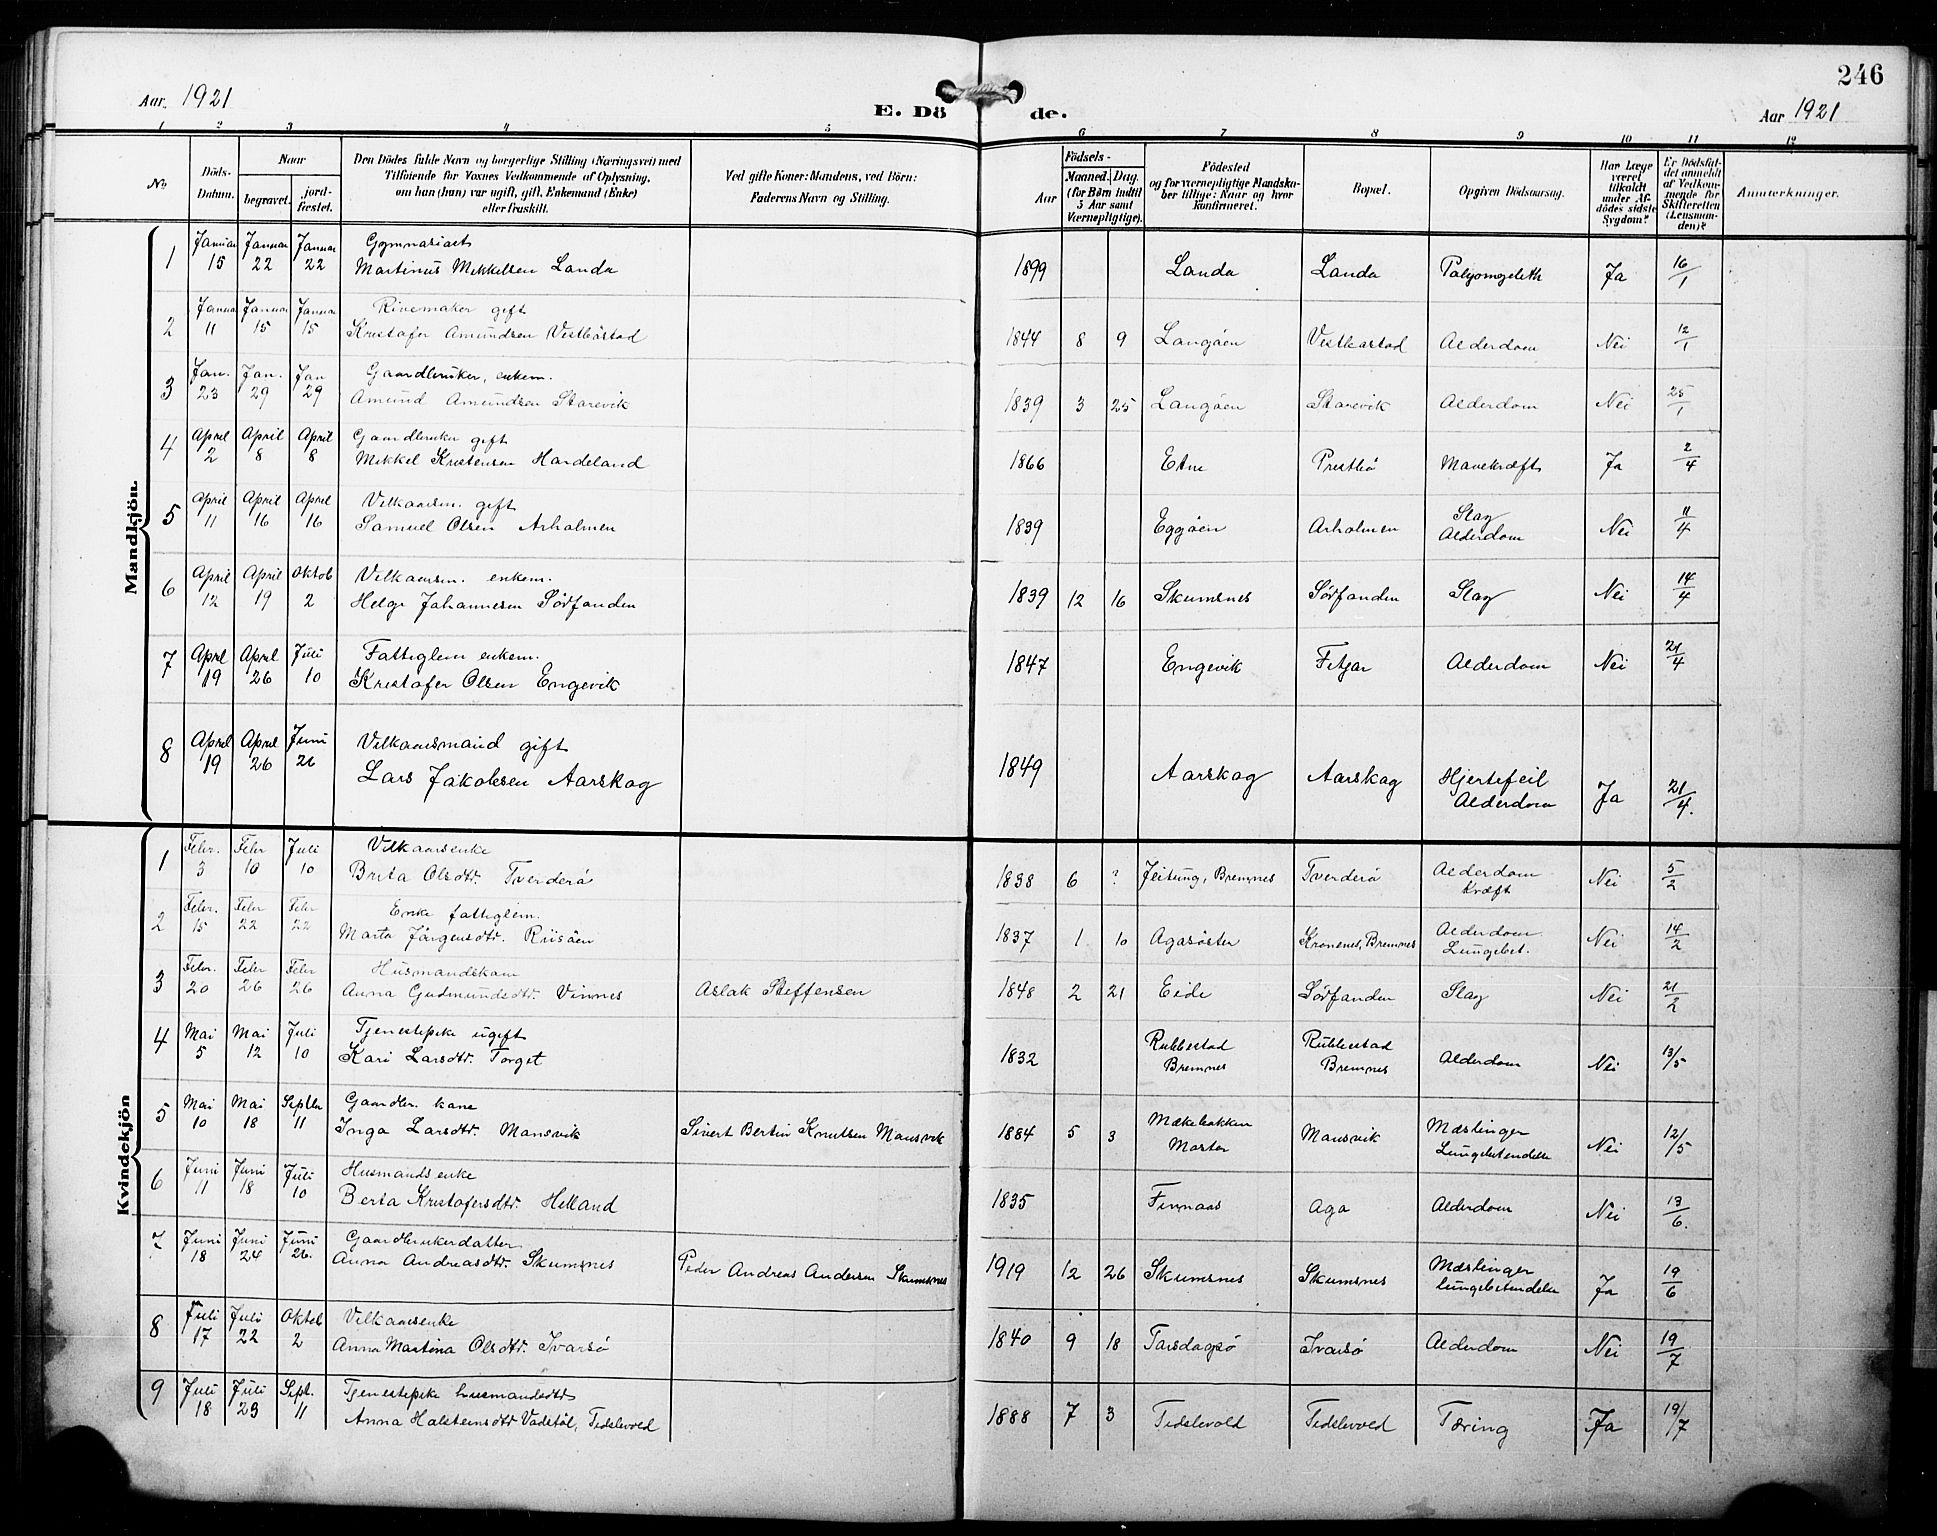 246
Aar 1921
E. Döde.
Aar 1921
1 2 3 4 5 6 7 8 9 10 11 12
No.
Döds-Datum.
Naar
begravet.
jord-fæstet.
Den Dödes fulde Navn og borgerlige Stilling (Næringsvei) med
Tilföiende for Voxnes Vedkommende af Oplysning,
om han (hun) var ugift, gift, Enkemand (Enke)
eller fraskilt.
Ved gifte Koner: Mandens, ved Börn:
Faderens Navn og Stilling.
Födsels-
Aar
Maaned. Dag.
(for Börn indtil
5 Aar samt
Værnepligtige).
Födested
og for værnepligtige Mandska-
ber tillige: Naar og hvor
konfirmeret.
Bopæl.
Opgiven Dödsaarsag.
Har Læge
været
tilkaldt
under Af-
dödes sidste
Sygdom?
Er Dödsfal-
det anmeldt
af Vedkom-
mende for
Skifteretten
(Lensman-
den)?
Anmærkninger.
Mandkjön.
1 Januar 15 Januar 22 Januar 22 Gymnasiast
Martinus Mikkelsen Landa 1899 Landa Landa Ja 16/1
2 Januar 11 Januar 15 Januar 15 Rivemaker gift
Kristofer Amundsen Vestböstad 1844 8 9 Langöen Alderdom Nei 12/1
3 Jan. 23 Jan. 29 Jan 29 Gaardbruker, enkem.
Amund Amundsen Starevik 1839 3 25 Langöen Starevik Alderdom Nei 25/1
4 April 2 April 8 April 8 Gaardbruker gift
Mikkel Kristensen Hardeland 1866 Etne Prestbö Mavekræft Ja 2/4
5 April 11 April 16 April 16 Vilkaarsm. gift
Samuel Olsen Arholmen 1839 Eggöen Arholmen Slag
Alderdom Nei 11/4
6 April 12 April 19 Oktob 2 Vilkaarsm. enkem.
Helge Johannesen Sörfonden 1839 12 16 Skumsnes Sörfonden Slag Nei 14/4
7 April 19 April 26 Juli 10 Fattiglem enkem.
Kristofer Olsen Engevik 1847 Engevik Fitjar Alderdom Nei 21/4
8 April 19 April 26 Juni 26 Vilkaarsmand gift
Lars Jakobsen Aarskog 1849 Aarskog Aarskog Hjertefeil
Alderdom Ja 21/4.
Kvindekjön
1 Febr. 3 Febr 10 Juli 10 Vilkaarsenke
Brita Olsdtr. Tverderö 1838 6 ? Jeitung, Bremnes Tverderö Alderdom
Kræft Nei 5/2
2 Febr. 15 Febr 22 Febr 22 Enke fattiglem.
Marta Jörgensdtr. Riisöen 1837 1 10 Agasöster Kronenes, Bremnes Alderdom
Lungebet. Nei 14/2
3 Febr. 20 Febr 26 Febr 26 Husmandskone
Anna Gudmundsdtr. Vinnes Aslak Steffensen 1848 2 21 Eide Sörfonden Slag Nei 21/2
4 Mai 5 Mai 12 Juli 10 Tjenestepike ugift
Kari Larsdtr. Torget 1832 Rubbestad
Bremnes Rubbestad
Bremnes Alderdom Nei 13/5
5 Mai 10 Mai 18 Septbr 11 Gaardbr. kone
Inga Larsdtr. Mansvik Sivert Bertin Knutsen Mansvik 1884 5 3 Mækebakken
Moster Mansvik Mæslinger
Lungebetendelse Nei 12/5
6 Juni 11 Juni 18 Juli 10 Husmandsenke
Berta Kristofersdtr. Helland 1835 Finnaas Aga Alderdom Nei 13/6.
7 Juni 18 Juni 24 Juni 26. Gaardbrukerdatter
Anna Andreasdtr. Skumsnes Peder Andreas Andersen Skumsnes 1919 12 26 Skumsnes Skumsnes Mæslinger
lungebetendelse Ja 19/6
8 Juli 17 Juli 22 Oktob 2 Vilkaarsenke
Anna Martina Olsdtr. Ivarsö 1840 9 18 Ivarsö Alderdom Nei 19/7
9 Juli 18 Juli 23 Sept. 11 Tjenestepike husmandsdtr
Anna Halsteinsdtr Vadstöl, Tislevold 1888 7 3 Tislevold Tislevold Tæring Ja 19/7